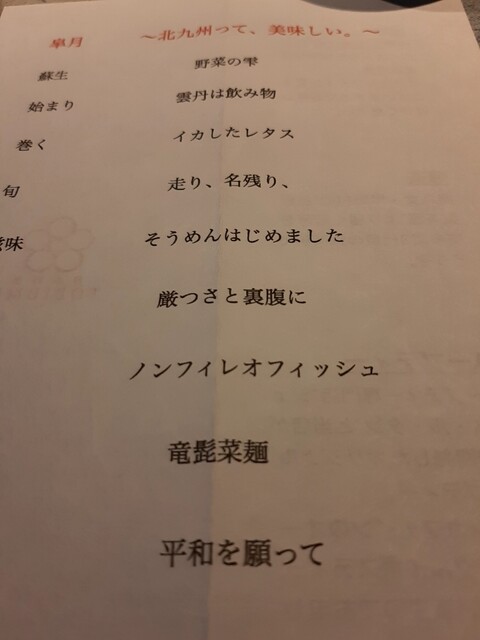 皐月 ～北九州って、美味しい。～
蘇生 野菜の雫
始まり 雲丹は飲み物
巻く イカしたレタス
旬 走り、名残り、
味 そうめんはじめました
厳つさと裏腹に
ノンフィレオフィッシュ
竜髭菜麺
平和を願って